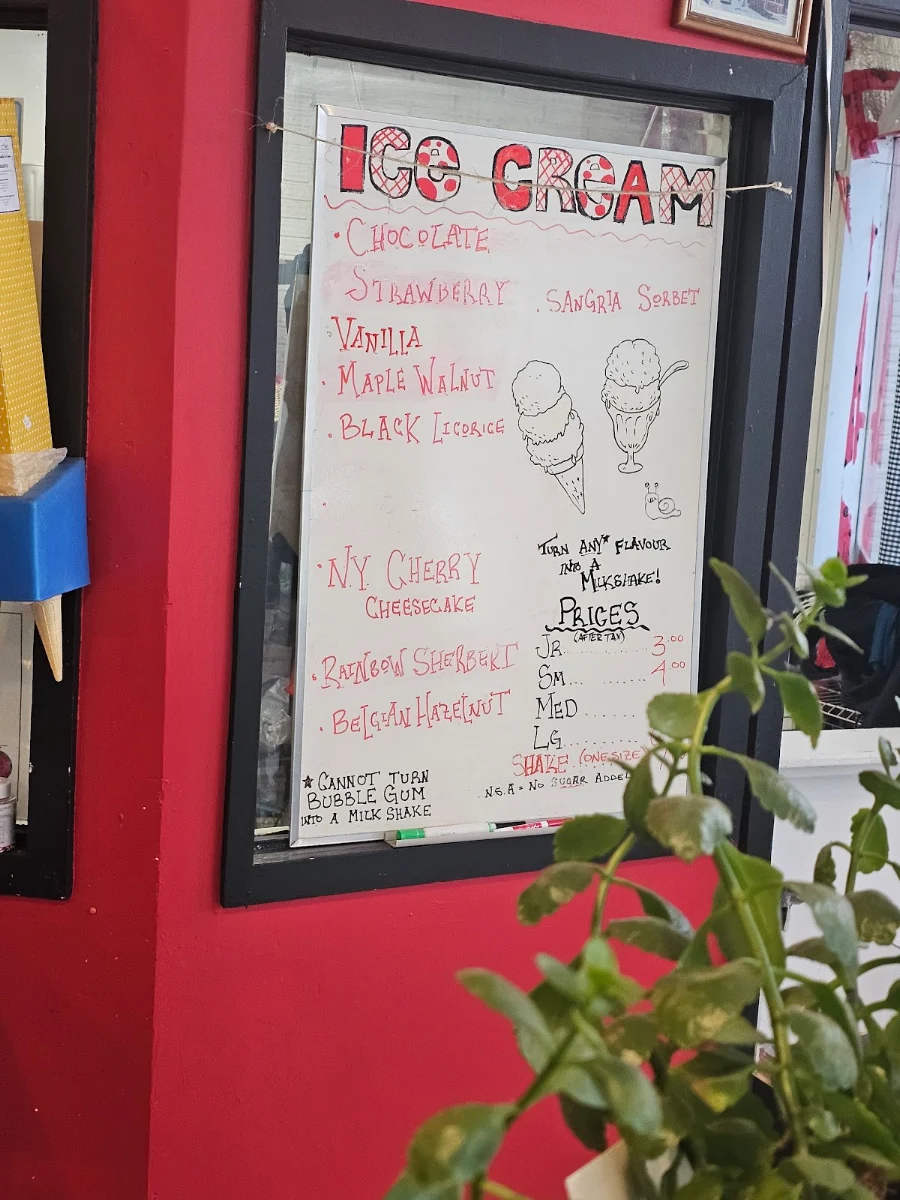 ICE CREAM
• CHOCOLATE
STRAWBERRY
• SANGRIA SORBET
• VANILLA
• MAPLE WALNUT
• BLACK LICORICE
•
• N.Y. CHERRY
CHEESECAKE
• RAINBOW SHERBERT
• BELGIAN HAZELNUT
★ CANNOT TURN
BUBBLE GUM
INTO A MILK SHAKE
TURN ANY* FLAVOUR
INTO A
MILKSHAKE!
PRICES
(AFTER TAX)
JR............ 3.00
SM............ 4.00
MED .......
LG..........
SHAKE (ONE SIZE)
N.S.A = NO SUGAR ADDED